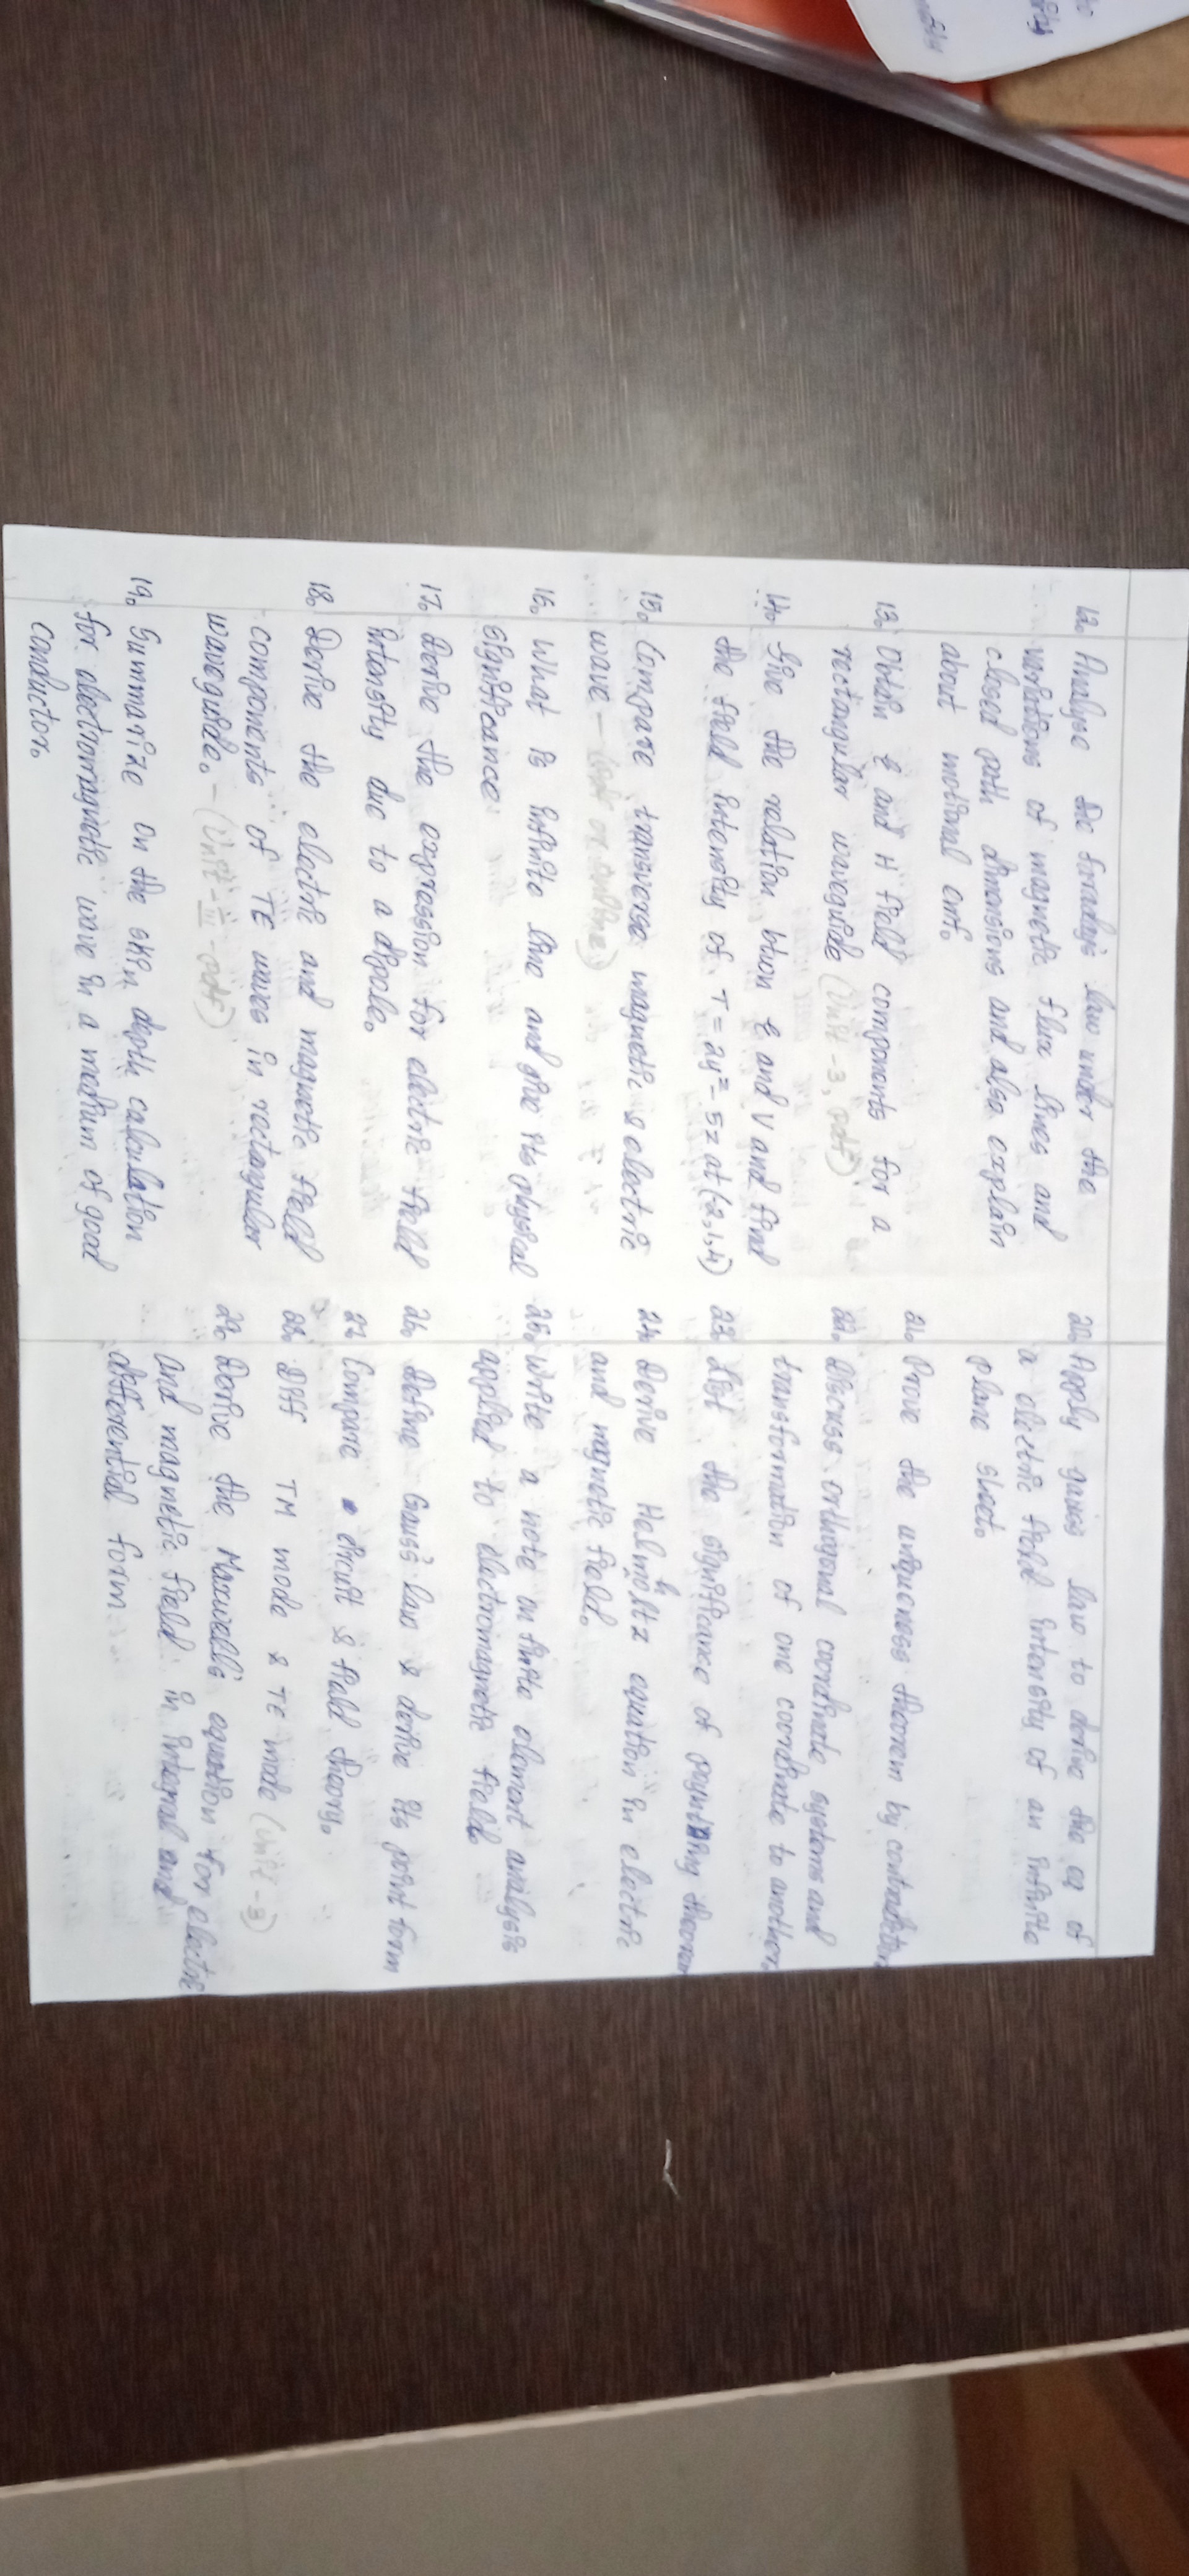 12. Analyse the faradays law under the
variations of magnetic flux lines and
closed path dimensions and also explain
about motional emf.
13. Obtain E and H field components for a
rectangular waveguide (Unit - 3, pdf)
14. Give the relation btwn E and V and find
the field intensity of T = 2y² - 5z at (2,1,4)
15. Compare transverse magnetic & electric
wave -
16. What is infinite line and give its physical
significance.
17. Derive the expression for electric field
intensity due to a dipole.
18. Derive the electric and magnetic field
components of TE waves in rectangular
waveguide. - (Unit - III - pdf)
19. Summarize on the skin depth calculation
for electromagnetic wave in a medium of good
conductor.
20. Apply law to derive the eq of
a electric field intensity of an infinite
plane sheet.
21. Prove the uniqueness theorem by contradiction
22. Discuss orthogonal coordinate systems and
transformation of one coordinate to another.
23. List the significance of poynting theorem
24. Derive Helmholtz equation in electric
and magnetic field.
25. Write a note on finite element analysis
applied to electromagnetic field.
26. Define Gauss's law & derive its point form
27. Compare circuit & field theory.
28. Diff TM mode & TE mode (unit - 3)
29. Derive the Maxwells equation for electric
and magnetic field in integral and
differential form